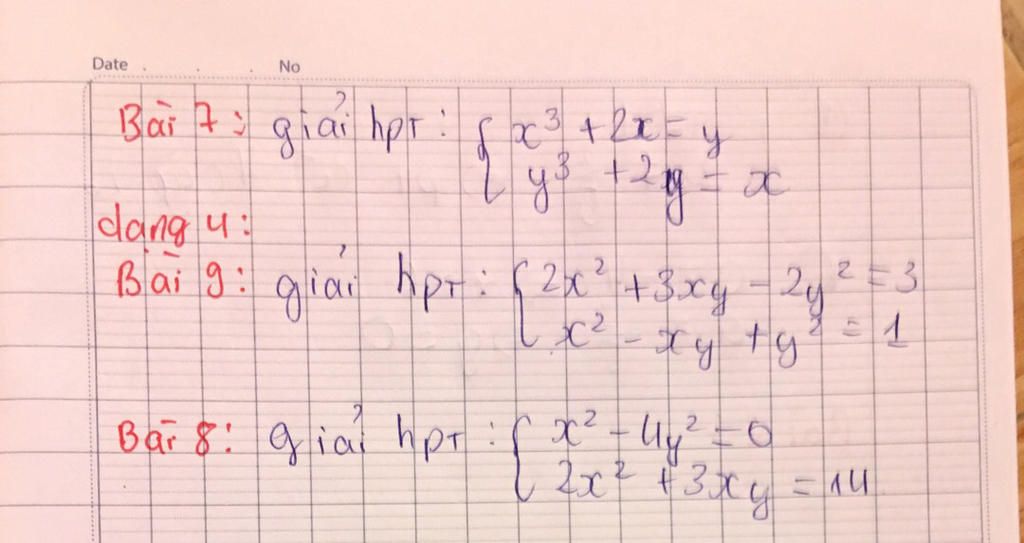 Date . . . No
Bài 7: giải hpt: { x³ + 2x = y
y³ + 2y = x
dạng 4:
Bài 9: giải hpt: { 2x² + 3xy - 2y² = 3
x² - xy + y² = 1
Bài 8: giải hpt: { x² - 4y² = 0
2x² + 3xy = 14